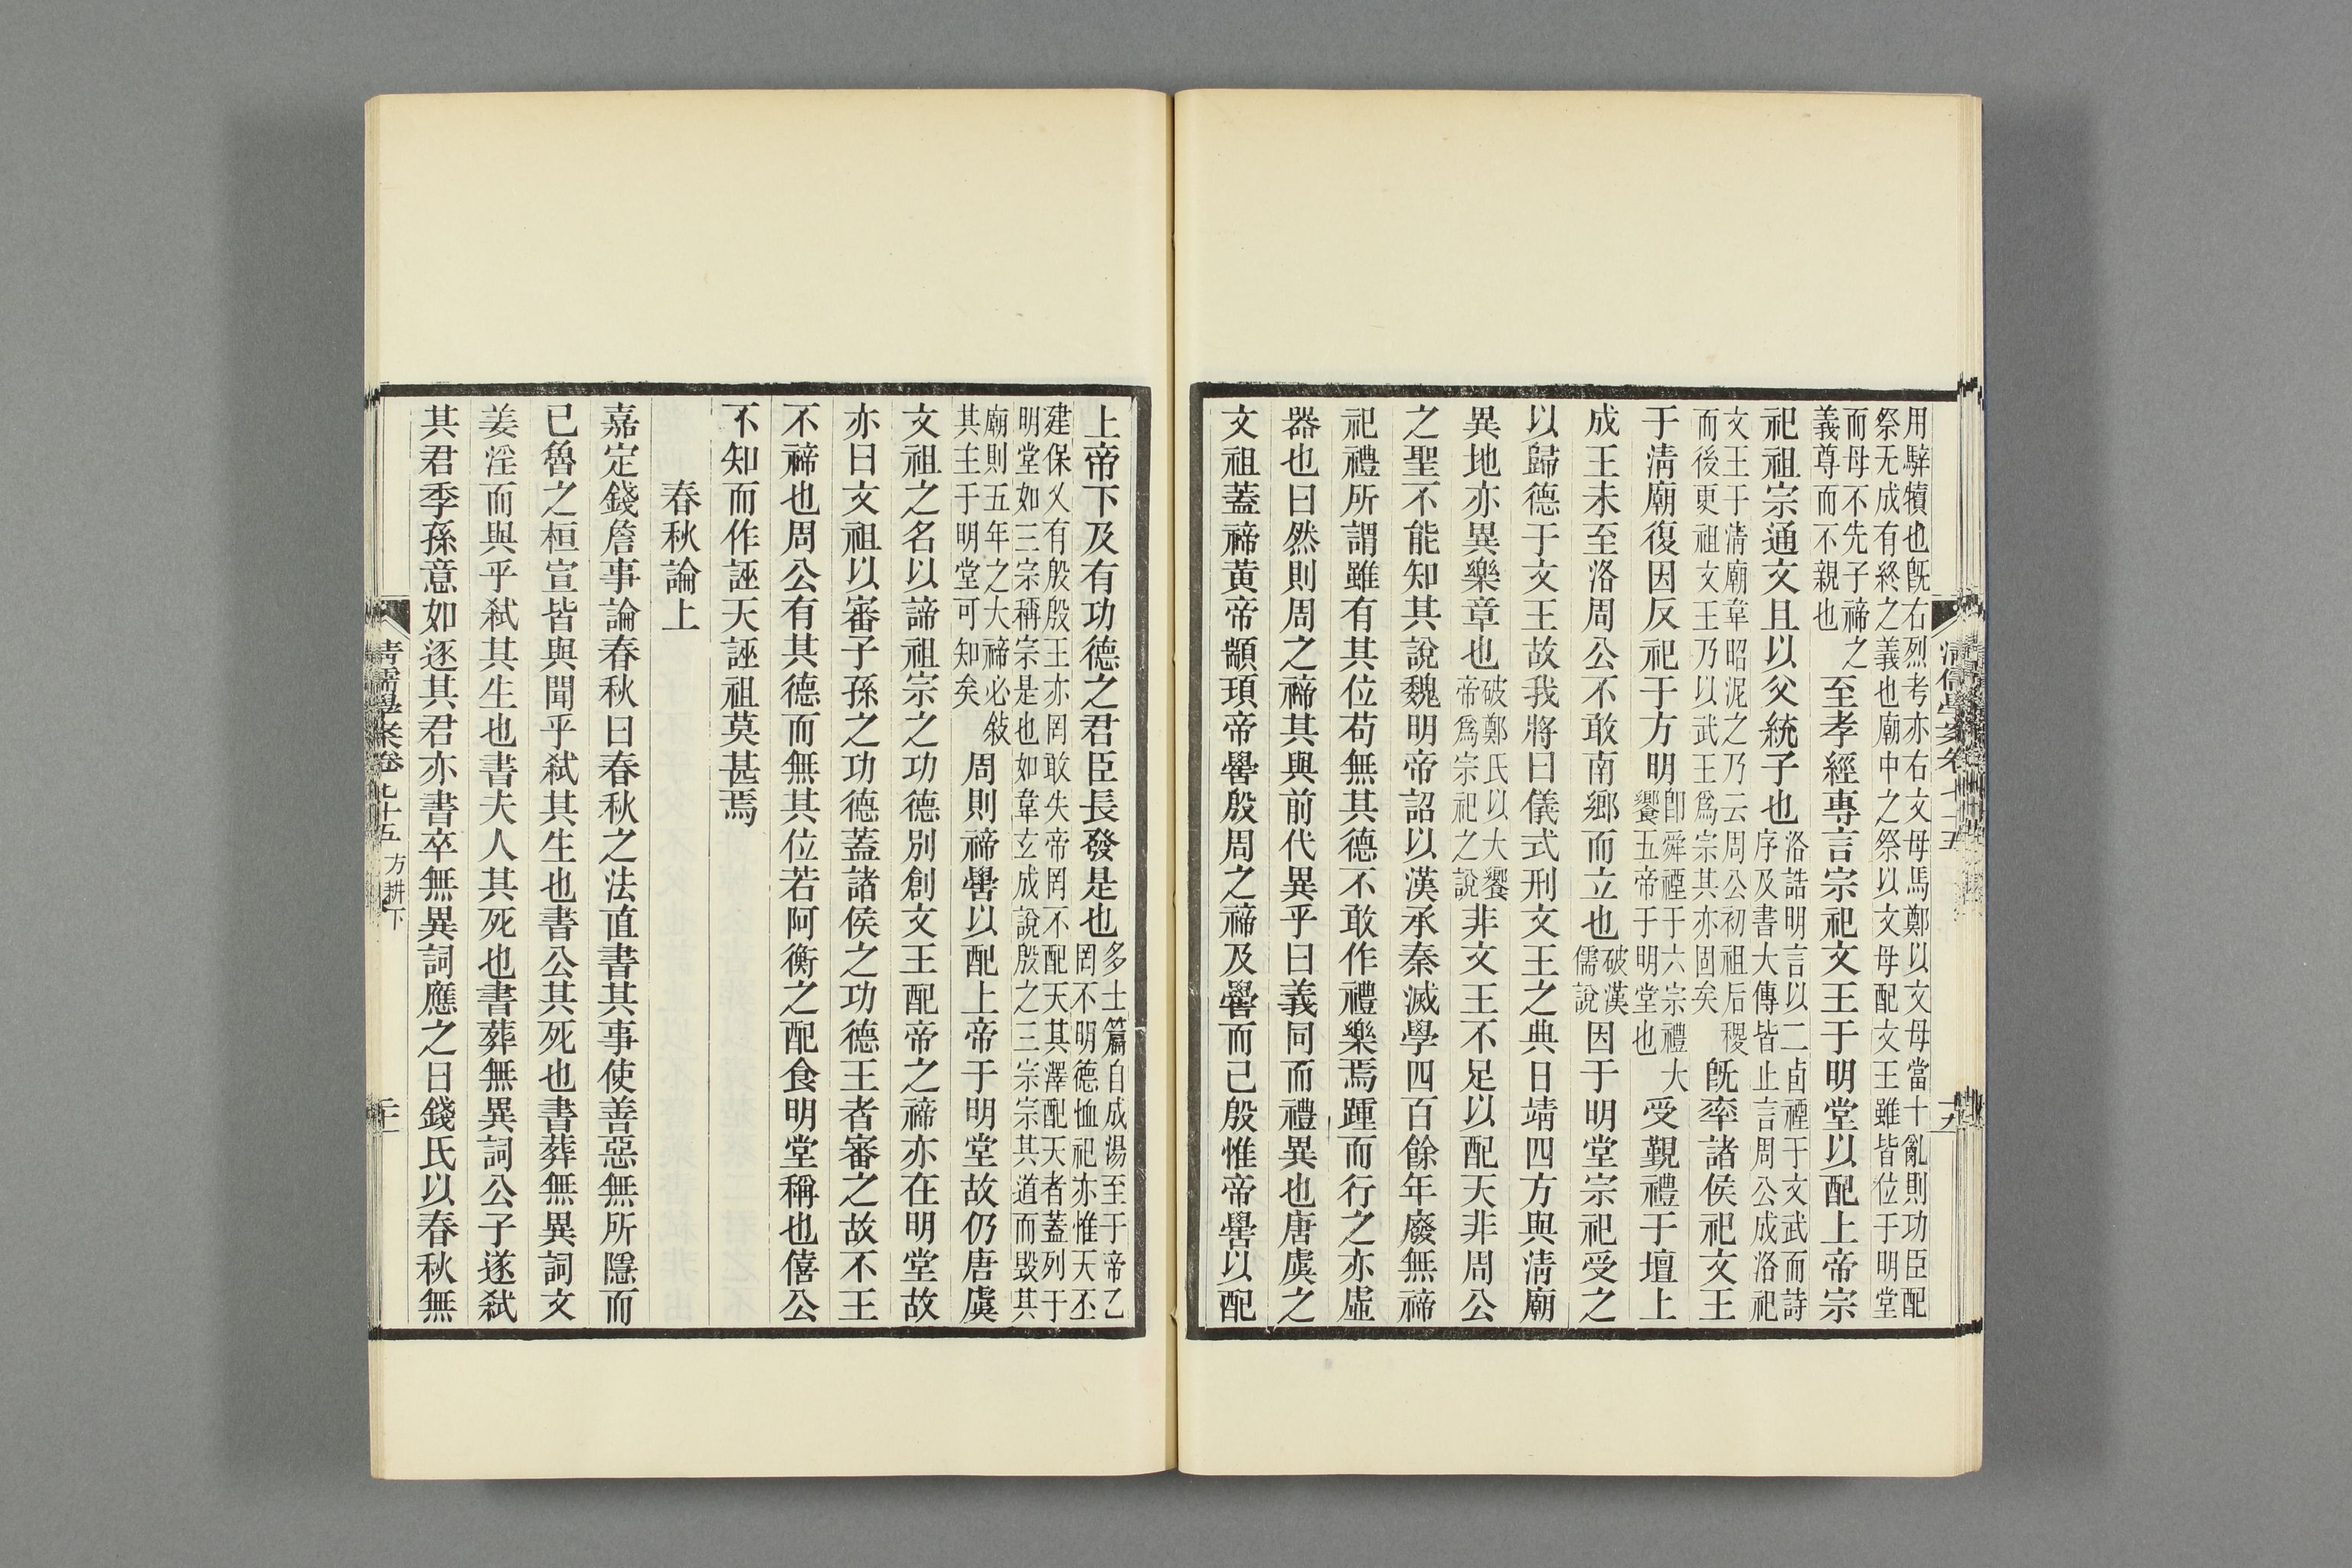 用騂犢也旣右烈考亦右文母馬鄭以文母當十亂則功臣配
祭无成有終之義也廟中之祭以文母配文王雖皆位于明堂
而母不先子禘之
義尊而不親也
至孝經專言宗祀文王于明堂以配上帝宗
祀祖宗通文且以父統子也
洛誥明言以二卣禋于文武而詩
序及書大傳皆止言周公成洛祀
文王于淸廟韋昭泥之乃云周公初祖后稷
而後更祖文王乃以武王爲宗其亦固矣
旣率諸侯祀文王
于淸廟復因反祀于方明
卽舜禋于六宗禮大
饗五帝于明堂也
受覲禮于壇上
成王未至洛周公不敢南鄉而立也
破漢
儒說
因于明堂宗祀受之
以歸德于文王故我將曰儀式刑文王之典日靖四方與淸廟
異地亦異樂章也
破鄭氏以大饗
帝爲宗祀之說
非文王不足以配天非周公
之聖不能知其說魏明帝詔以漢承秦滅學四百餘年廢無禘
祀禮所謂雖有其位苟無其德不敢作禮樂焉踵而行之亦虛
器也曰然則周之禘其與前代異乎曰義同而禮異也唐虞之
文祖蓋禘黃帝顓頊帝嚳殷周之禘及嚳而已殷惟帝嚳以配
淸儒學案卷七十五
十九
上帝下及有功德之君臣長發是也
多士篇自成湯至于帝乙
罔不明德恤祀亦惟天丕
建保乂有殷殷王亦罔敢失帝罔不配天其澤配天者蓋列于
明堂如三宗稱宗是也如韋玄成說殷之三宗宗其道而毀其
廟則五年之大禘必敍
其主于明堂可知矣
周則禘嚳以配上帝于明堂故仍唐虞
文祖之名以諦祖宗之功德別創文王配帝之禘亦在明堂故
亦曰文祖以審子孫之功德蓋諸侯之功德王者審之故不王
不禘也周公有其德而無其位若阿衡之配食明堂稱也僖公
不知而作誣天誣祖莫甚焉
春秋論上
嘉定錢詹事論春秋曰春秋之法直書其事使善惡無所隱而
已魯之桓宣皆與聞乎弒其生也書公其死也書葬無異詞文
姜淫而與乎弒其生也書夫人其死也書葬無異詞公子遂弒
其君季孫意如逐其君亦書卒無異詞應之曰錢氏以春秋無
淸儒學案卷七十五
方耕下
二十